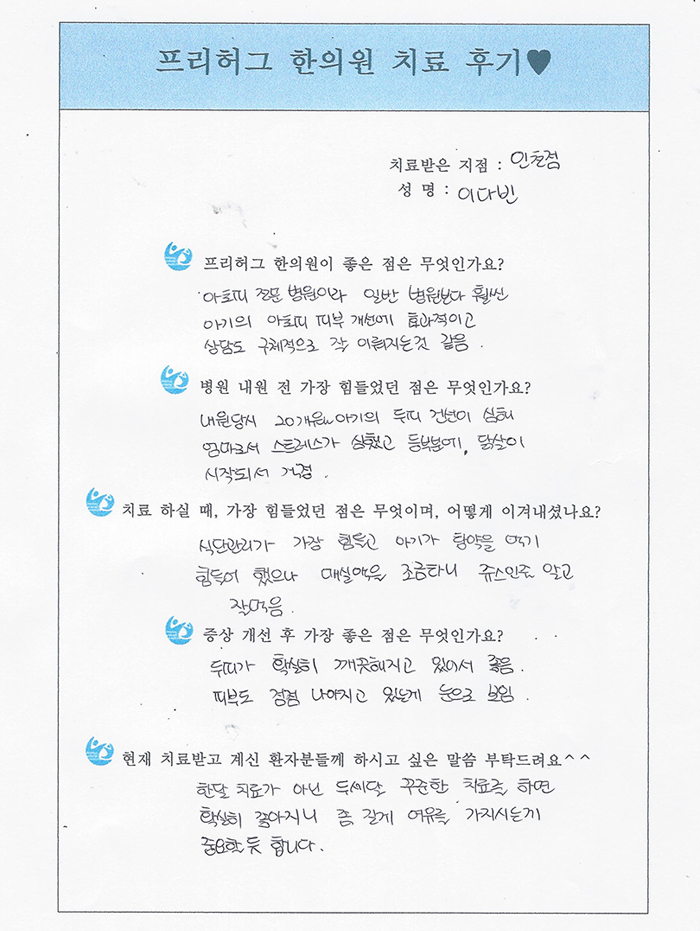 프리허그 한의원 치료 후기♥
치료받은 지점 : 인천점
성 명 : 이다빈
프리허그 한의원이 좋은 점은 무엇인가요?
아토피 전문 병원이라 일반 병원보다 훨씬
아기의 아토피 피부 개선에 효과적이고
상담도 구체적으로 잘 이뤄지는것 같음.
병원 내원 전 가장 힘들었던 점은 무엇인가요?
내원당시 20개월 아기의 두피 건선이 심해
엄마로서 스트레스가 심했고 등부분에, 닭살이
시작되서 걱정.
치료 하실 때, 가장 힘들었던 점은 무엇이며, 어떻게 이겨내셨나요?
식단관리가 가장 힘들고 아기가 탕약을 먹기
힘들어 했으나 매실액을 조금타니 쥬스인줄 알고
잘먹음.
증상 개선 후 가장 좋은 점은 무엇인가요?
두피가 확실히 깨끗해지고 있어서 좋음.
피부도 점점 나아지고 있는게 눈으로 보임.
현재 치료받고 계신 환자분들께 하시고 싶은 말씀 부탁드려요^^
한달 치료가 아닌 두세달 꾸준한 치료를 하면
확실히 좋아지니 좀 길게 여유를 가지시는게
중요한듯 합니다.